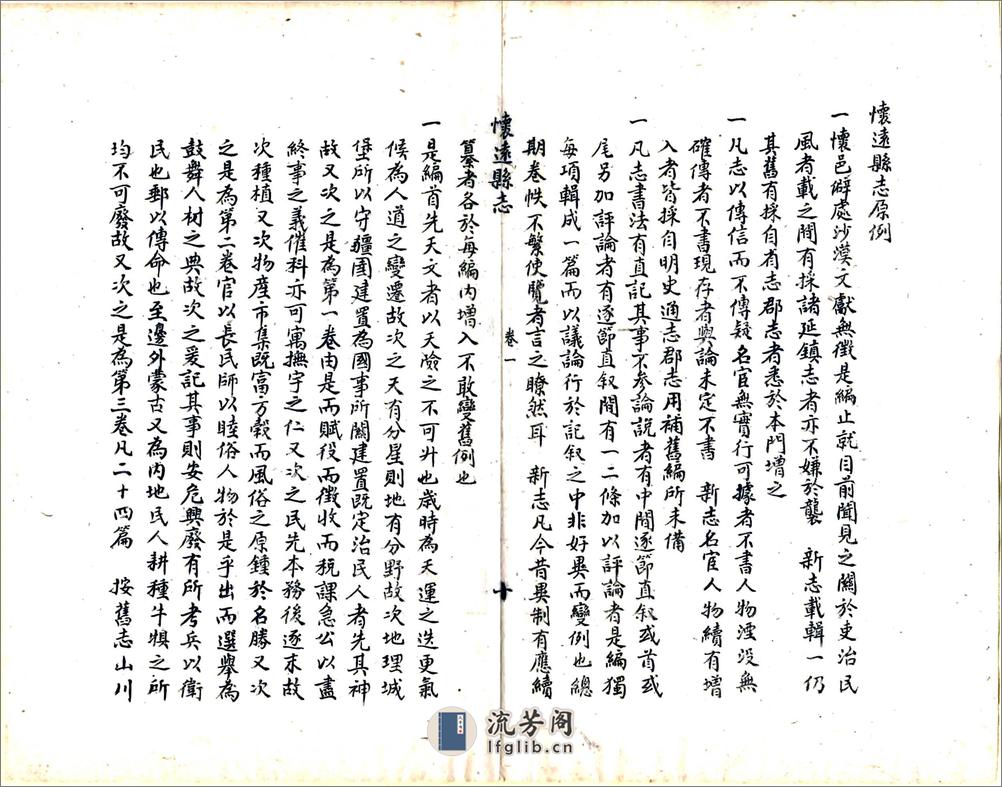 懷遠縣志原例
一懷邑僻處沙漠文獻無徵是編止就目前聞見之關於吏治民
風者載之間有採諸延鎮志者亦不嫌於襲　新志載輯一仍
其舊有採自省志郡志者悉於本門增之
一凡志以傳信而不傳疑名宦無實行可據者不書人物湮沒無
確傳者不書現存者輿論未定不書　新志名宦人物續有增
入者皆採自明史通志郡志用補舊編所未備
一凡志書法有直記其事不參論說者有中間逐節直叙或首或
尾另加評論者有逐節直叙間有一二條加以評論者是編獨
每項輯成一篇而以議論行於記叙之中非好異而變例也總
期卷帙不繁使覽者言之瞭然耳　新志凡今昔異制有應續
懷遠縣志　卷一　十
纂者各於每編內增入不敢變舊例也
一是編首先天文者以天險之不可升也歲時為天運之迭更氣
候為人道之變遷故次之天有分星則地有分野故次地理城
堡所以守疆圉建置為國事所關建置既定治民人者先其神
故又次之是為第一卷由是而賦役而徵收而稅課急公以盡
終事之義催科亦可寓撫字之仁又次之民先本務後逐末故
次種植又次物產市集既富方穀而風俗之原鍾於名勝又次
之是為第二卷官以長民師以睦俗人物於是乎出而選舉為
鼓舞人材之典故次之爰記其事則安危興廢有所考兵以衛
民也郵以傳命也至邊外蒙古又為內地民人耕種牛犋之所
均不可廢故又次之是為第三卷凡二十四篇　按舊志山川
流芳阁
lfglib.cn